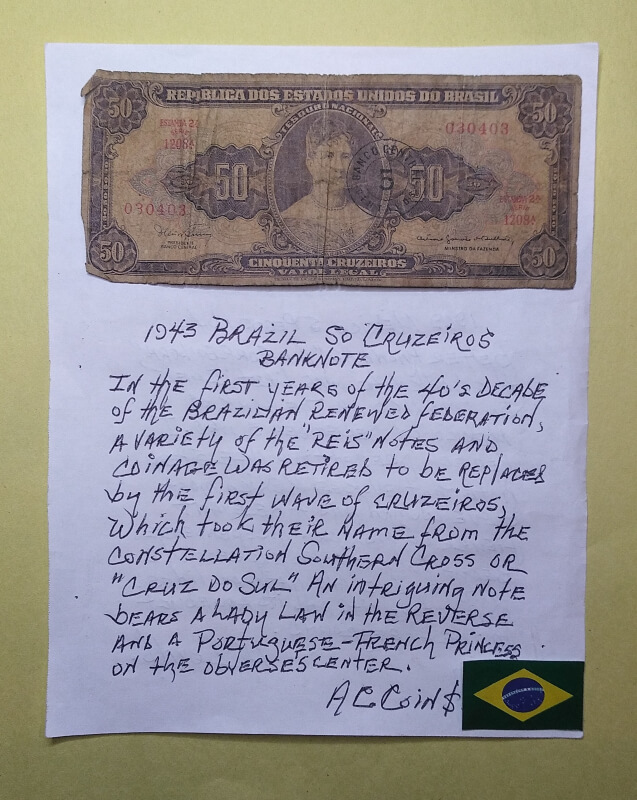 REPUBLICA DOS ESTADOS UNIDOS DO BRASIL
50
50
TESOURO NACIONAL
ESTAMPA 2ª
SÉRIE
1208ª
030403
50
50
BANCO CENTRAL
030403
ESTAMPA 2ª
SÉRIE
1208ª
PRESIDENTE
BANCO CENTRAL
MINISTRO DA FAZENDA
50
50
CINQUENTA CRUZEIROS
VALOR LEGAL
1943 BRAZIL 50 CRUZEIROS
BANKNOTE
IN the first years of the 40's DECADE
of the BRAZILIAN RENEWED FEDERATION,
A VARIETY of the "REIS" NOTES AND
COINAGE WAS RETIRED to be REPLACED
by the first WAVE of CRUZEIROS,
Which took their NAME from the
CONSTELLATION Southern Cross OR
"CRUZ DO SUL" AN intriguing NOTE
bears A LADY LAW in the REVERSE
AND A PORTUGUESE-FRENCH PRINCESS
ON the OBVERSE'S CENTER.
AC COIN$